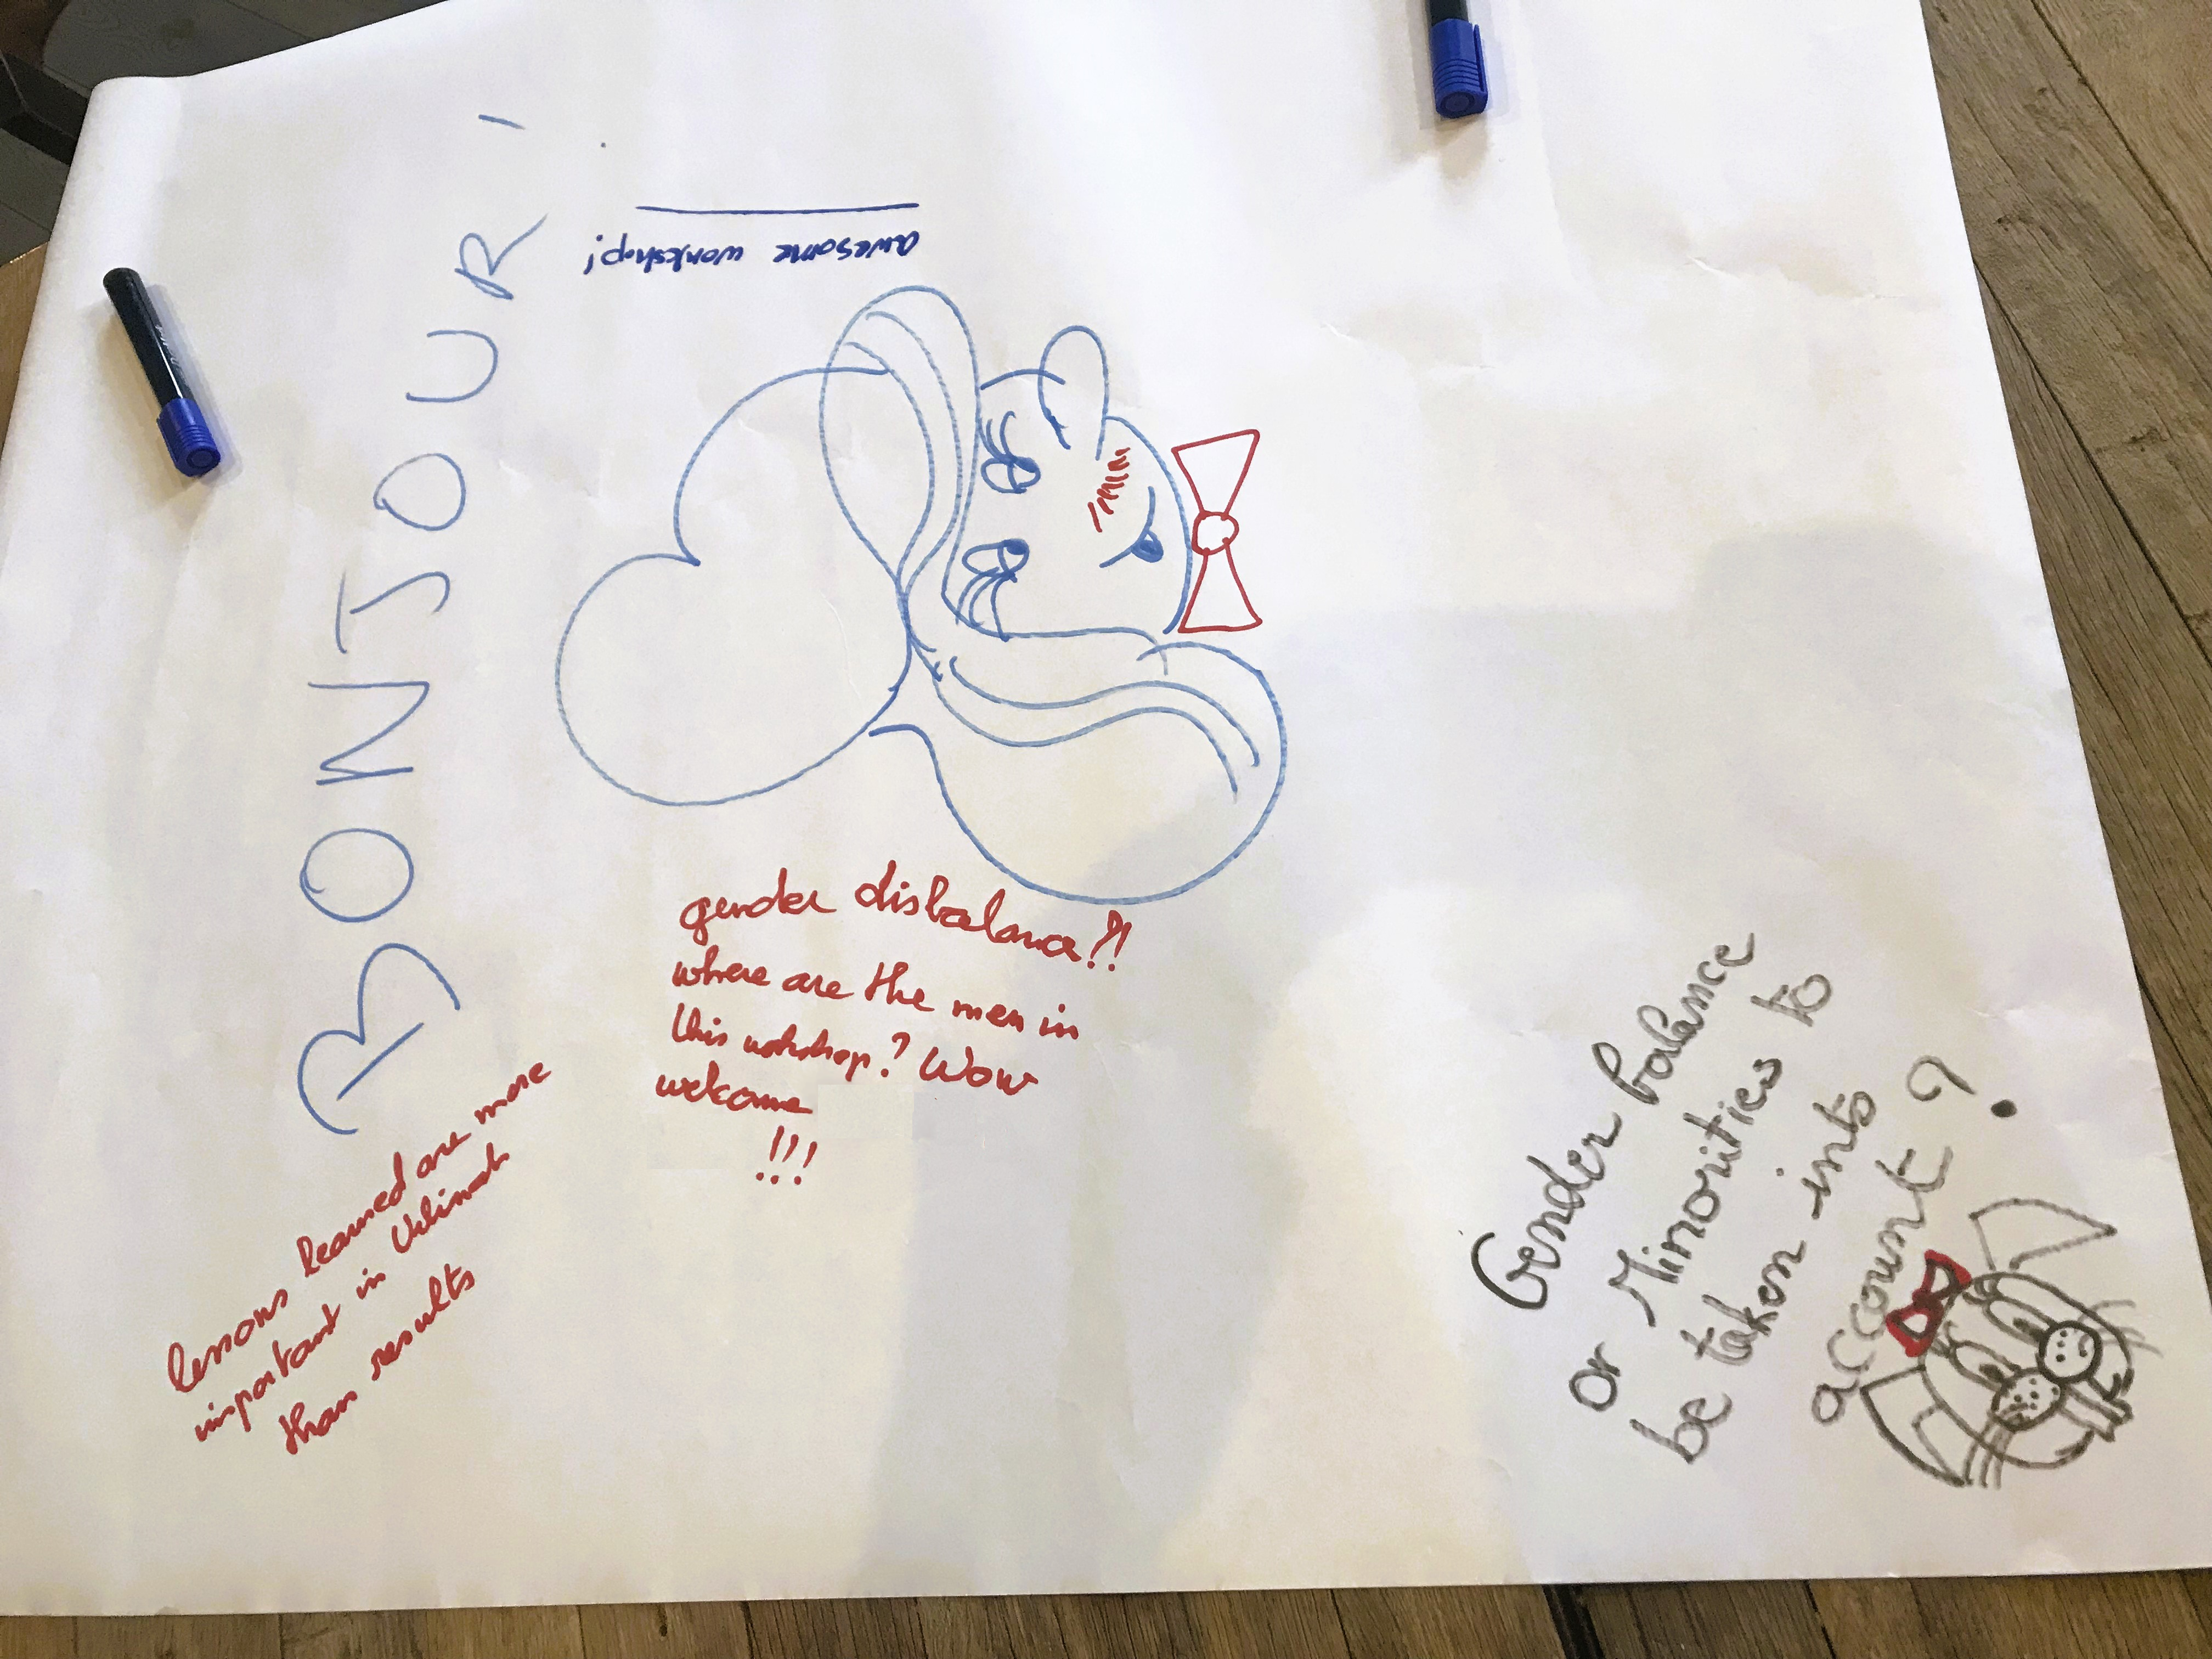 BONJOUR
awesome workshop!
gender disbalance?!
where are the men in
this workshop? Wow
welcome
!!!
lessons learned are more
important in
than results
Gender balance
or Minorities to
be taken into
account?